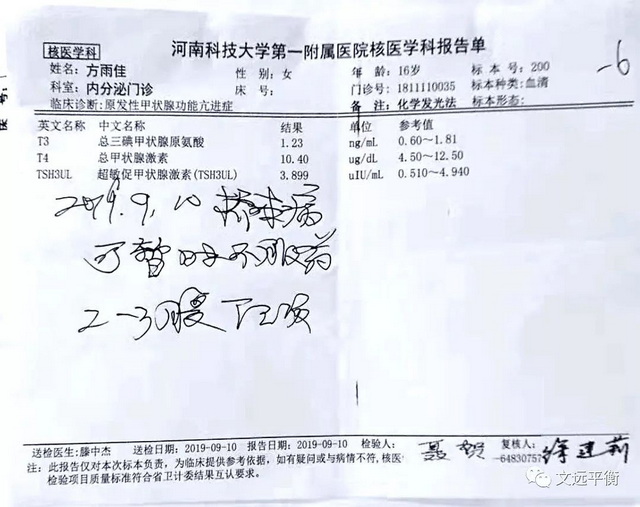 河南科技大学第一附属医院核医学科报告单
核医学科
姓名: 方雨佳 性 别: 女 年 龄: 16岁 标 本 号: 200
-6
科室: 内分泌门诊 床 号: 门诊号: 1811110035 标本种类: 血清
临床诊断: 原发性甲状腺功能亢进症 备 注: 化学发光法 标本形态:
英文名称 中文名称 结果 单位 参考值
T3 总三碘甲状腺原氨酸 1.23 ng/mL 0.60～1.81
T4 总甲状腺激素 10.40 ug/dL 4.50～12.50
TSH3UL 超敏促甲状腺激素(TSH3UL) 3.899 uIU/mL 0.510～4.940
2019.9.10 桥本病
可暂时不服药
送检医生: 滕中杰 送检日期: 2019-09-10 报告日期: 2019-09-10 检验人: 复核人:
注: 此报告仅对本次标本负责，为临床提供参考依据，如有疑问或与病情不符, 核医 -64830757
检验项目质量标准符合省卫计委结果互认要求。
文远平衡